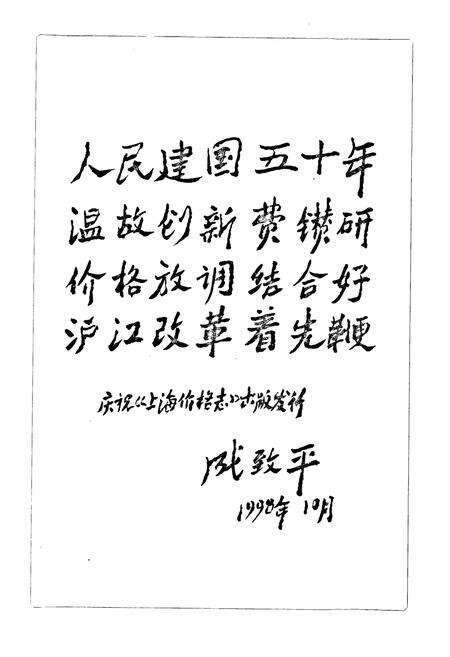 人民建国五十年
温故创新费鑚研
价格放调结合好
沪江改革着先鞭
庆祝《上海价格志》出版发行
成致平
1998年10月